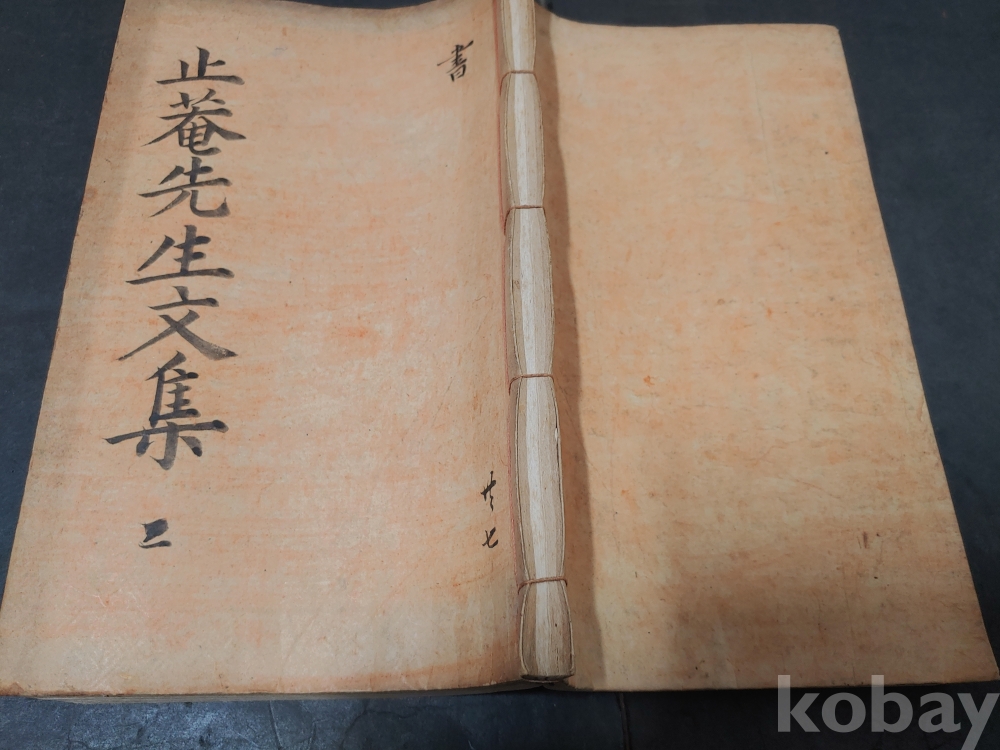 止菴先生文集
二
書
共七
kobay